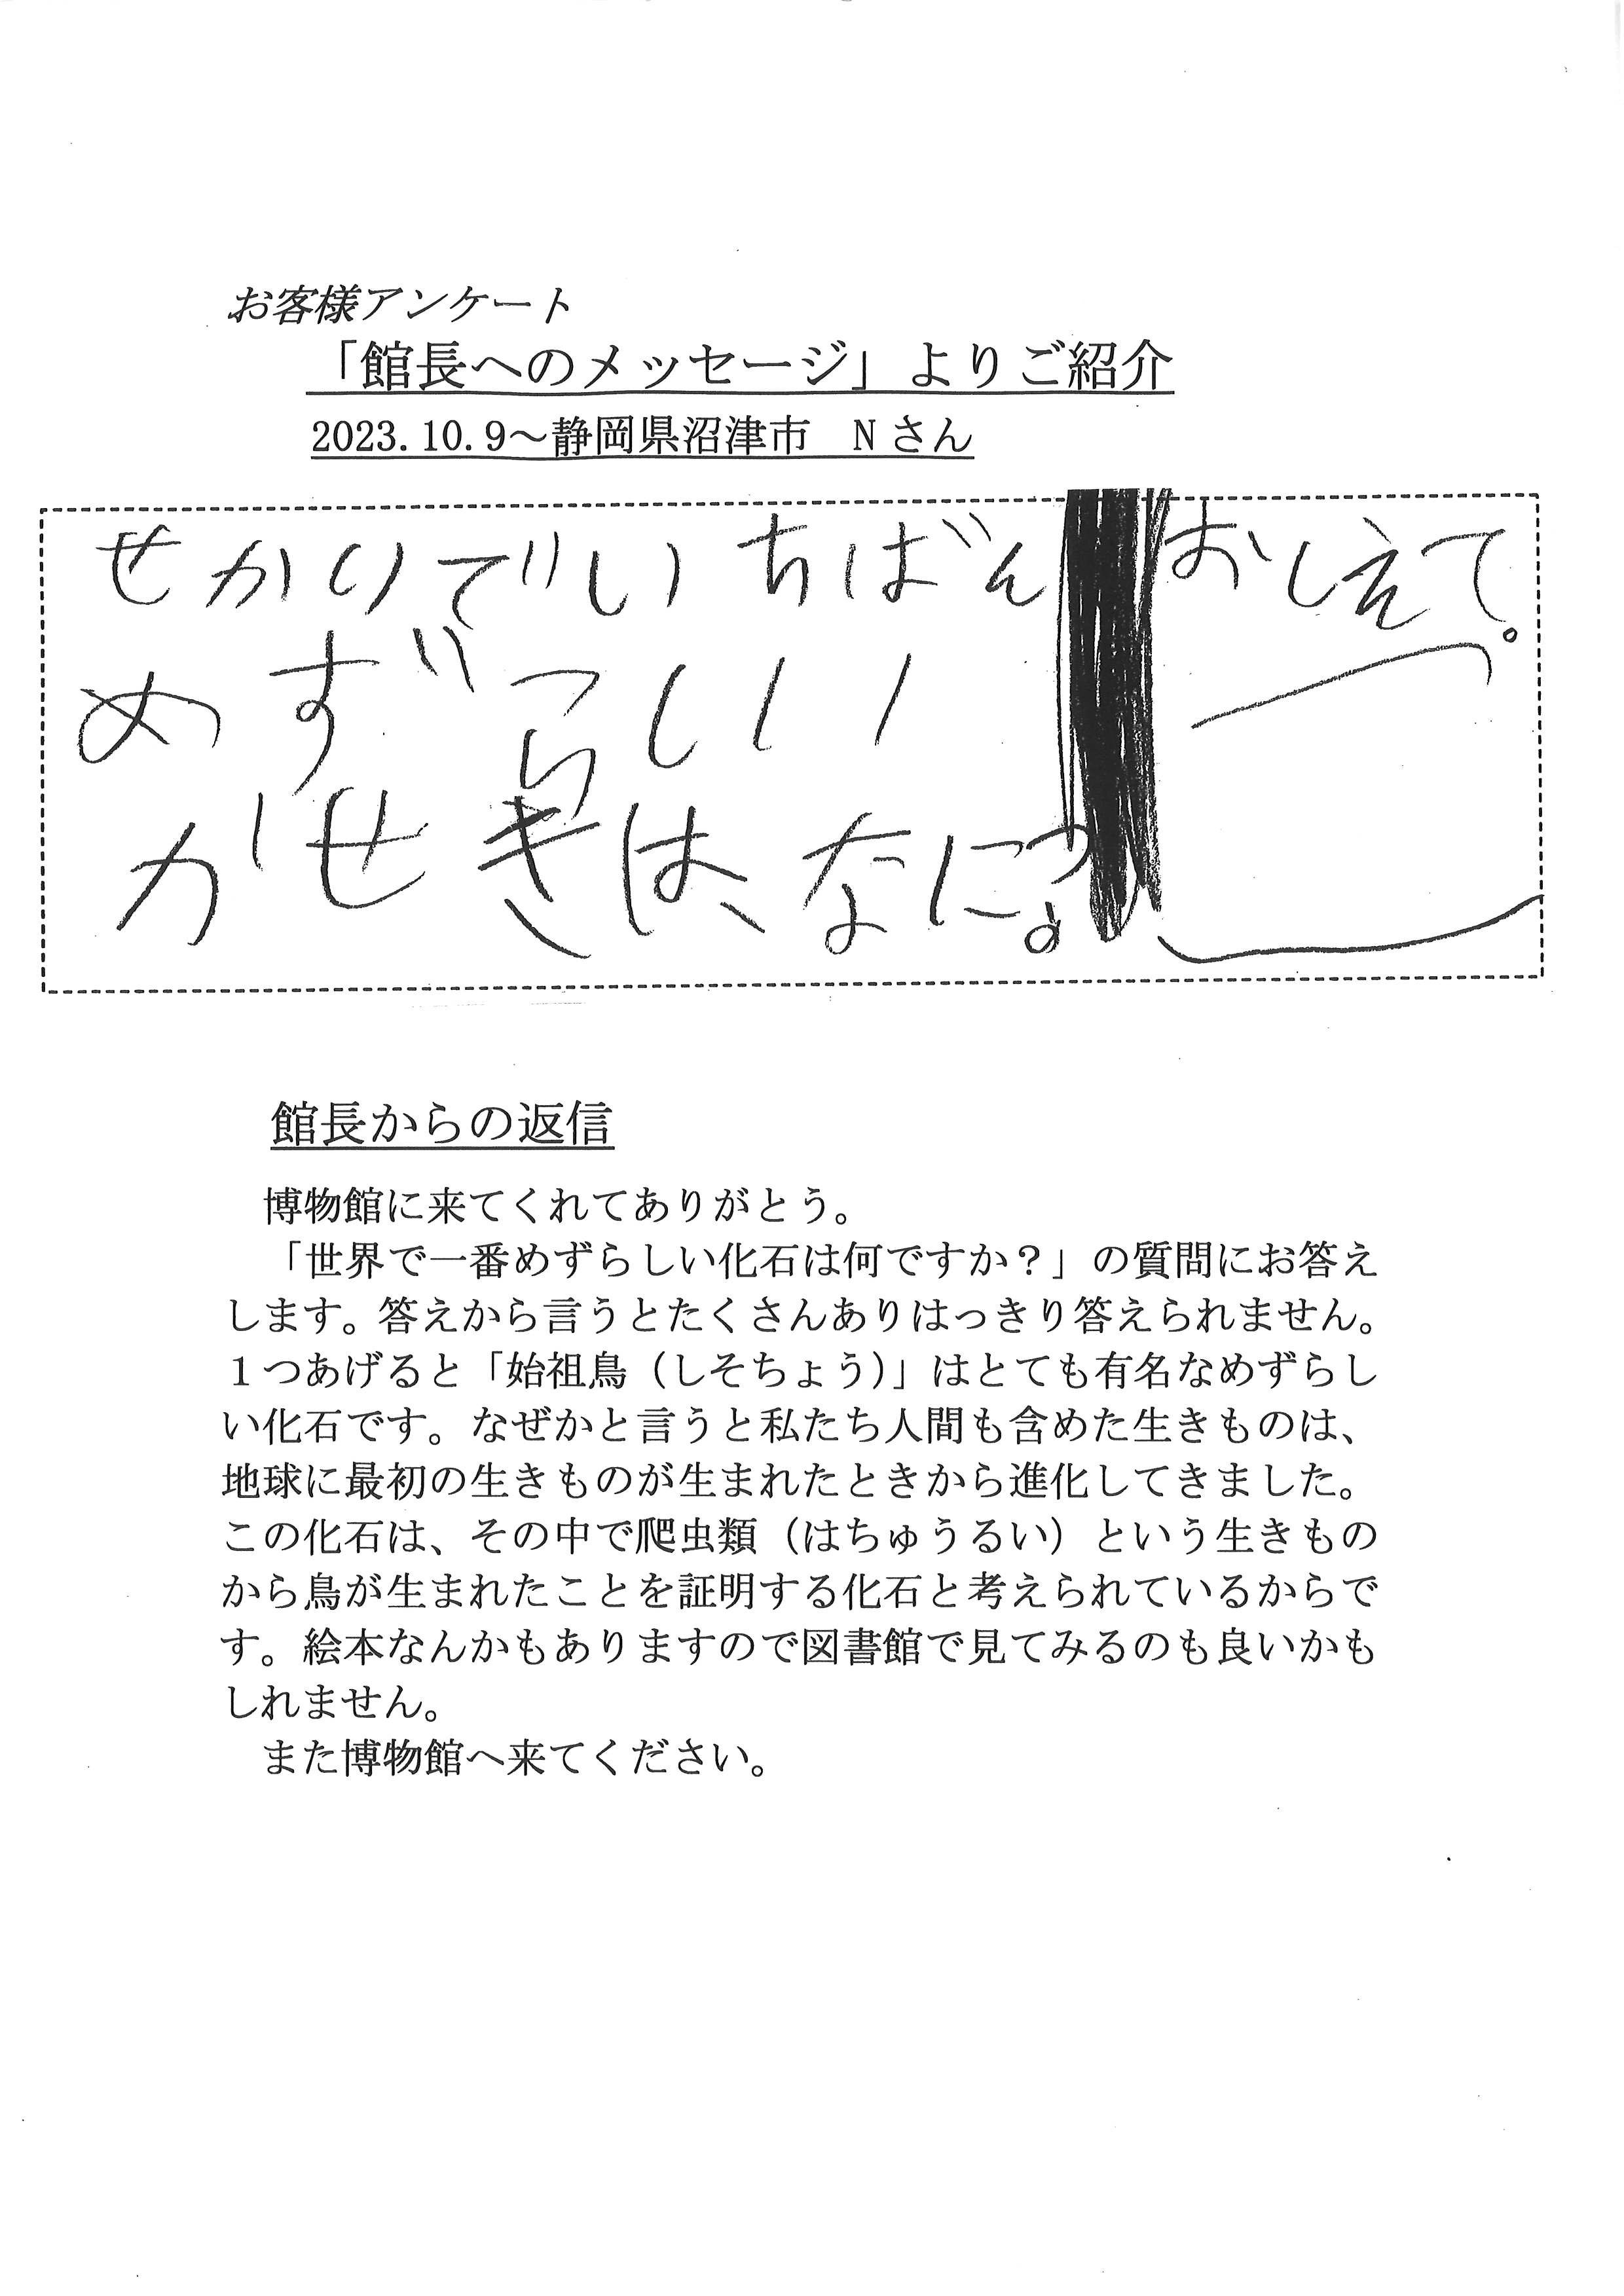 お客様アンケート
「館長へのメッセージ」よりご紹介
2023.10.9～静岡県沼津市　Nさん
せかいでいちばん
めずらしいい
かせきは、なに?
おしえて。
館長からの返信
博物館に来てくれてありがとう。
「世界で一番めずらしい化石は何ですか？」の質問にお答え
します。答えから言うとたくさんありはっきり答えられません。
１つあげると「始祖鳥（しそちょう）」はとても有名なめずらし
い化石です。なぜかと言うと私たち人間も含めた生きものは、
地球に最初の生きものが生まれたときから進化してきました。
この化石は、その中で爬虫類（はちゅうるい）という生きもの
から鳥が生まれたことを証明する化石と考えられているからで
す。絵本なんかもありますので図書館で見てみるのも良いかも
しれません。
また博物館へ来てください。